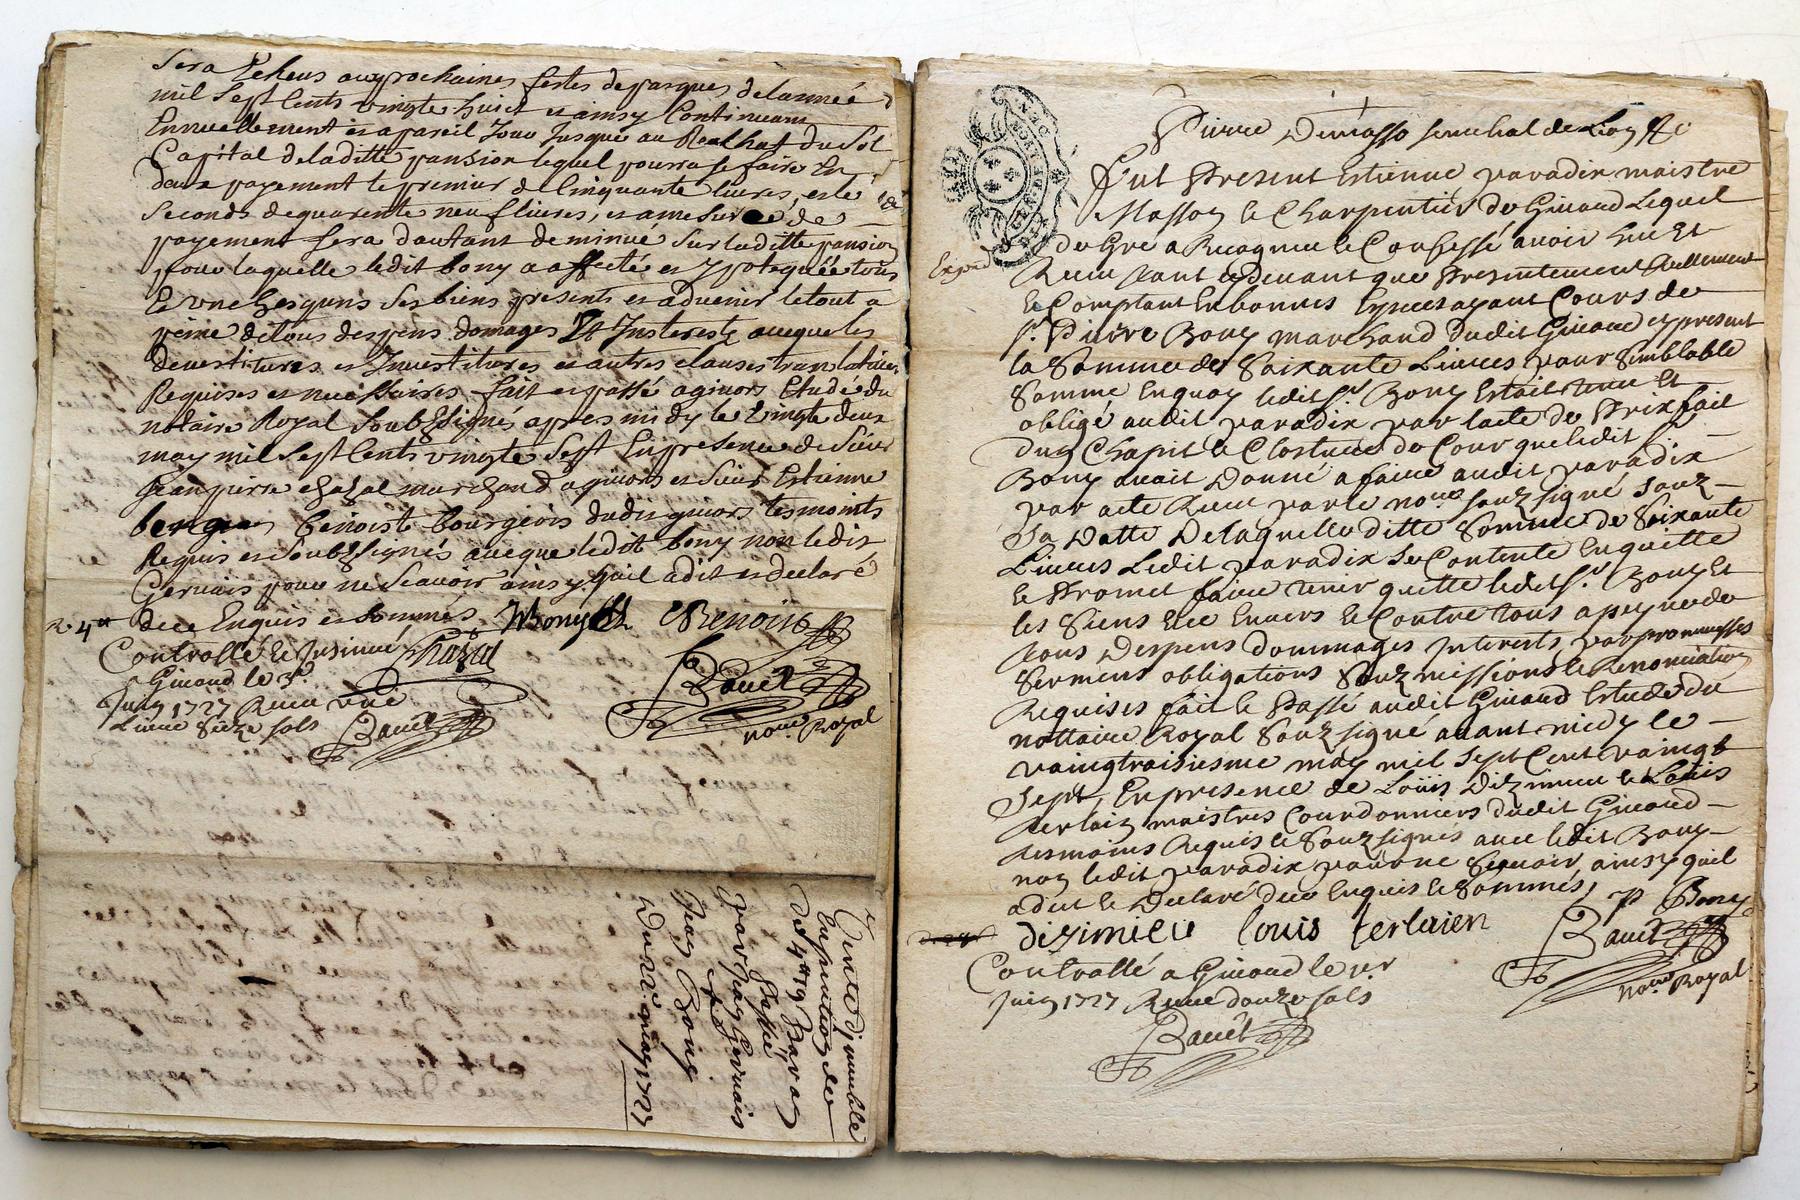 sera Escheus aux prochaines festes de pasques de lannée
mil sept Cents vingte huict et ainsy Continuant
Ennuellement et a pareil Jour Jusque au Rachat du sol
Capital de laditte pansion lequel pourra se faire En
deux payement le premier de Cinquante livres, et le
seconds de quarente neuf livres, et a mesure de
payement sera dautant deminué sur laditte pansion
pour laquelle ledit bony a affecté et ypotequée tous
Et vn chesquns ses biens presents et aduenir le tout a
peine de tous despens domages Et Interests auecque les
deuestitures et Inuestitures et autres clauses translatiues
Requises et necessaires fait et passé a Etude du
notaire Royal soubssigné apres midy le vingte deux
may mil sept Cents vingte sept En presence de sieur
Jean pierre chazal marchand et sieur Estienne
benoist bourgeois dudit tesmoints
Requis et soubssignés auecque ledit bony non ledit
Geruais pour ne scauoir ainsy quil a dit et declaré
de ce Enquis et sommés Bony Benoist
R. 4
Controllé & Jnsinué Chazal
Giraud le 3e
Juin 1727 Receu une
Livre seize sols
nore Royal
Vente djmuble
En pention de
de 4 19
Passé
par Jean Geruais
a
Jean Bony
Du 22e may 1727
Pierre Demasso senechal de Lion &c
GEN DE LION
Fut Present Estienne paradix maistre
Masson & Charpentier de Giraud Lequel
de Gré a Recognu & Confessé auoir Eu Et
Exped
Receu tant cydeuant que Presentement Reellement
& Comptant En bonnes Especes ayant Cours de
sr. Pierre Bony marchand dudit Giraud cy present
la Somme de Soixante Livres pour Semblable
Somme En quoy ledit sr. Bony Estoit tenu Et
obligé audit paradix par lacte de Prixfait
dun Chapit & Closture de Cour que ledit sr.
Bony auoit Donné a faire audit paradix
par acte Receu par le nore souzsigné souz
Sa Datte De laquelle ditte Somme de Soixante
Livres Ledit paradix se Contente En quitte
& Promet faire tenir quitte ledit sr. Bony Et
les Siens Et Enuers & Contre tous a peyne de
tous Despens dommages Interests par promesses
Serment obligations Souzmissions & Renonciation
Requises fait & Passé audit Giraud Estude du
nottaire Royal Souzsigné auant midy le
vaingtroisiesme may mil sept Cent vaingt
sept, En presence de Louis Dizimieu & Louis
terlain maistres Courdonniers dudit Giraud
tesmoins Requis & Souzsignes auec ledit Bony
non ledit paradix pour ne Scauoir ainsy quil
a dit & Declaré de ce Enquis & Sommés,
P Bony
dizimieu louis terlaien
Controllé a Giraud le 1er
nore Royal
Juin 1727 Receu douze sols